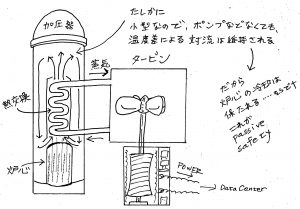 加圧器
たしかに
小型なので、ポンプなでなくても、
温度差による対流は維持される
蒸気
タービン
熱交換
だから
炉心の冷却は
保たれる……そうです
これが
passive
safety
炉心
POWER
Data Center